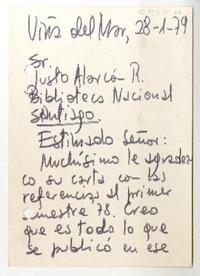 Viña del Mar, 28-1-79
Sr.
Justo Alarcón R.
Biblioteca Nacional
Santiago.
Estimado Señor:
Muchísimo le agradez-
co su carta con las
referencias al primer
semestre 78. Creo
que es todo lo que
se publicó en ese